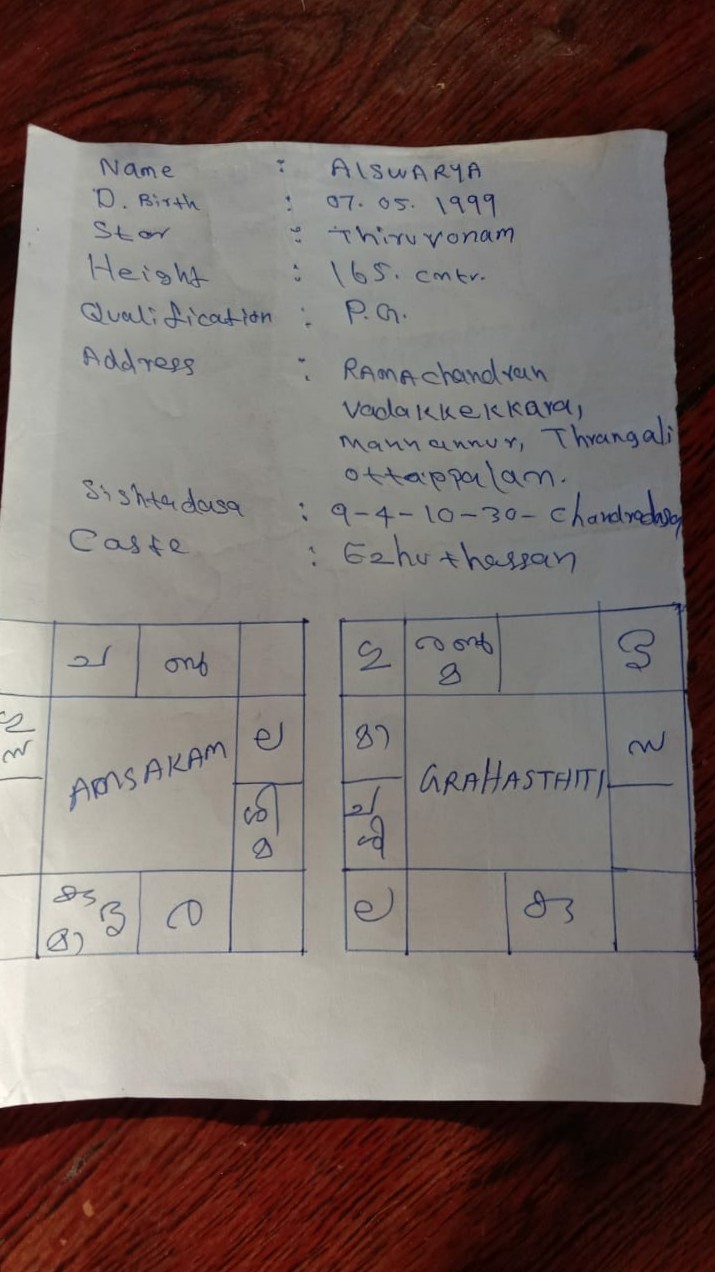 Name : AISWARYA
D. Birth : 07. 05. 1999
Star : Thiruvonam
Height : 165. cmtr.
Qualification : P.G.
Address : RAMAchandran
Vadakkekkara,
Mannannur, Thrangali
ottappalam.
Sishtadasa : 9-4-10-30- Chandradasa
Caste : Ezhuthassan
ച
ല
AMSAKAM
ശി
മ
ര
ഗു
മ
ശു
മാ
ച
ശി
GRAHASTHITI
സ
ല
കു